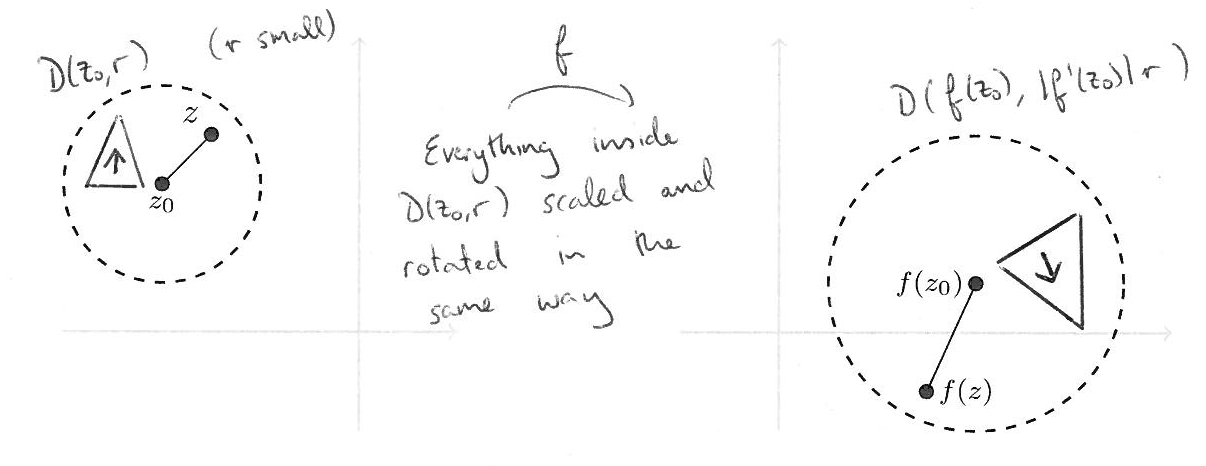 D(z₀,r) (r small)
z
z₀
f
Everything inside
D(z₀,r) scaled and
rotated in the
same way
D(f(z₀), |f'(z₀)|r)
f(z₀)
f(z)